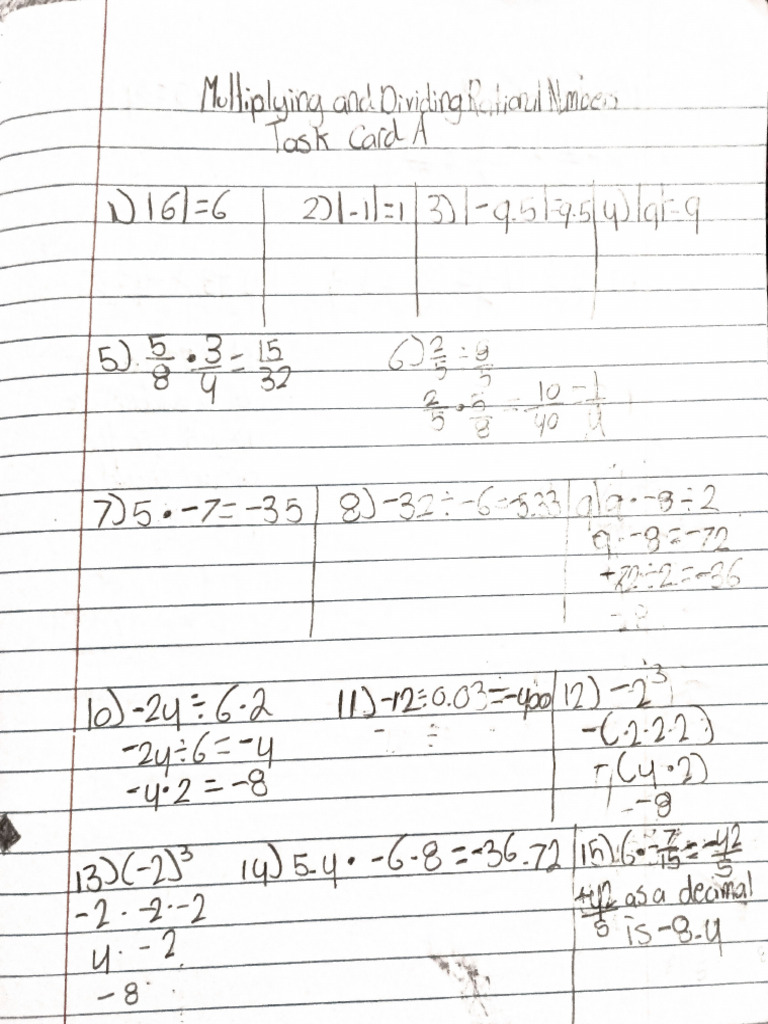 Multiplying and Dividing Rational Numbers
Task Card A
1) |6|=6 2) |-1|=1 3) |-9.5|=9.5 4) |9|=9
5) 5/8 • 3/4 = 15/32 6) 2/5 ÷ 8/5
2/5 • 5/8 = 10/40 = 1/4
7) 5 • -7 = -35 8) -32 ÷ -6 = 5.33 9) 9 • -8 ÷ 2
9 • -8 = -72
-72 ÷ 2 = -36
10) -24 ÷ 6 • 2 11) -12 ÷ 0.03 = -400 12) -2³
-24 ÷ 6 = -4 -(2•2•2)
-4 • 2 = -8 -(4•2)
-8
13) (-2)³ 14) 5.4 • -6.8 = -36.72 15) 6 • -7/15 = -42/5
-2 • -2 • -2 -42/5 as a decimal
4 • -2 is -8.4
-8